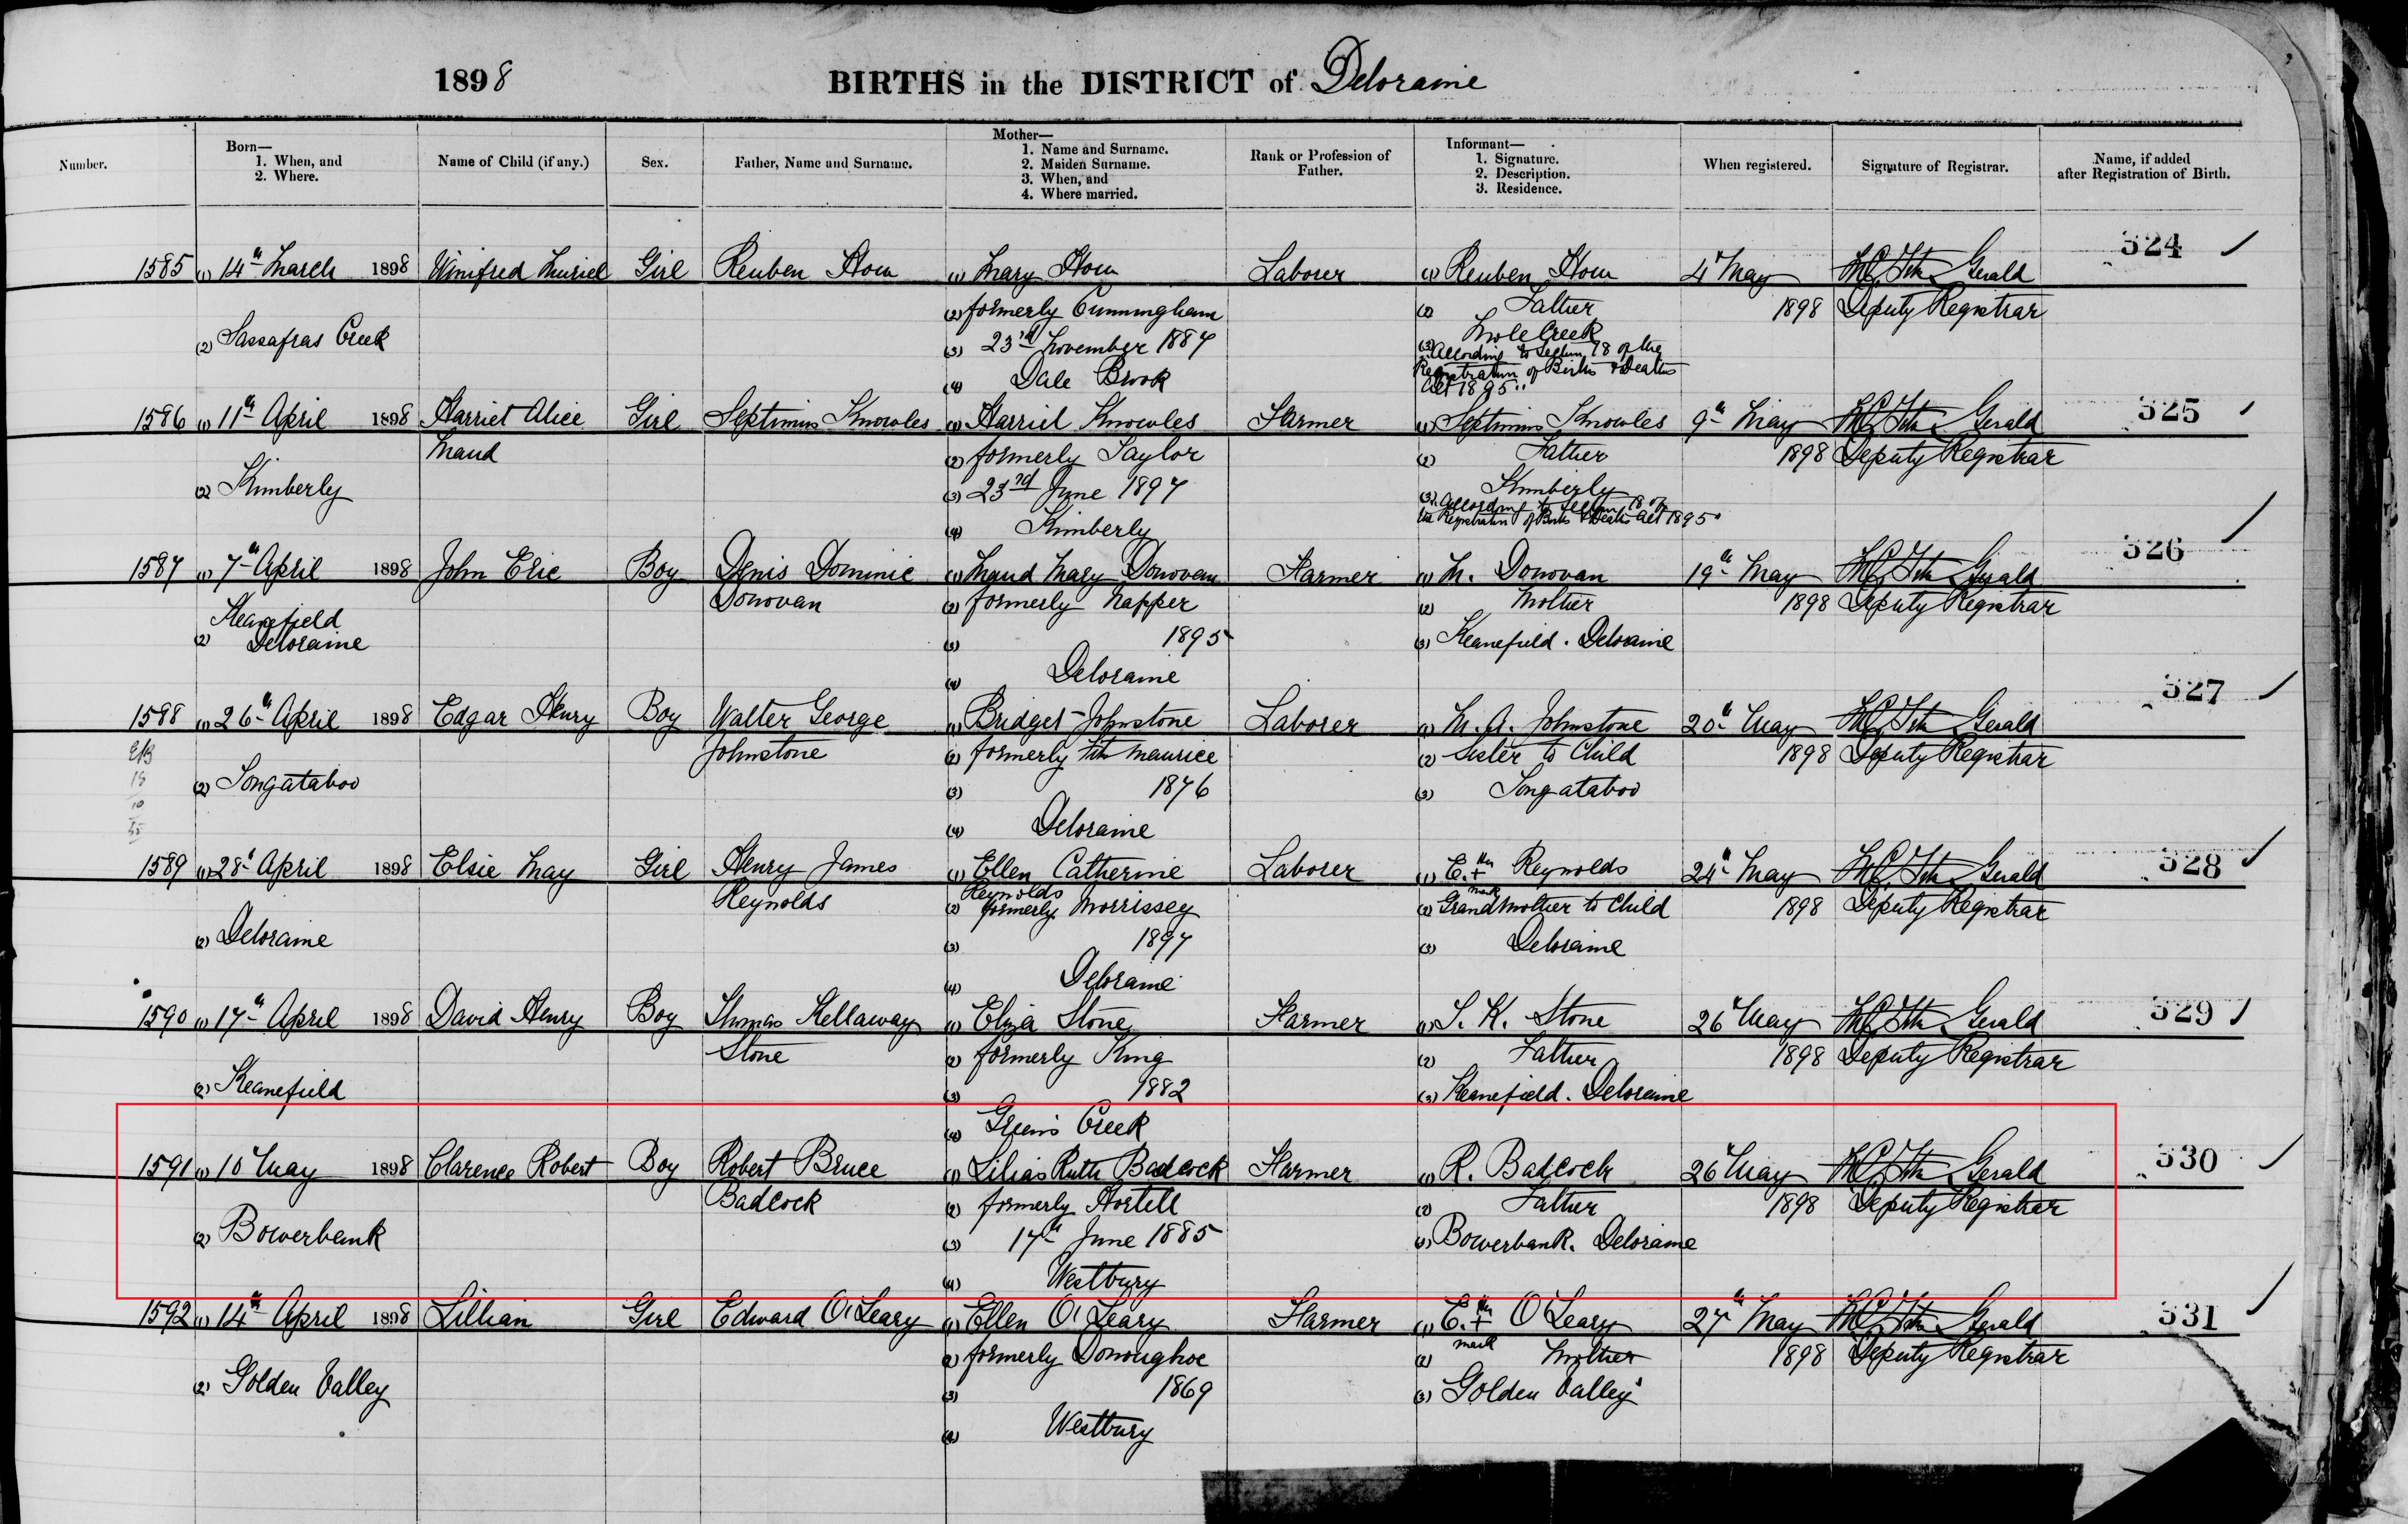 1898 BIRTHS in the DISTRICT of Deloraine
Number.
Born—
1. When, and
2. Where.
Name of Child (if any.)
Sex.
Father, Name and Surname.
Mother—
1. Name and Surname.
2. Maiden Surname.
3. When, and
4. Where married.
Rank or Profession of
Father.
Informant—
1. Signature.
2. Description.
3. Residence.
When registered.
Signature of Registrar.
Name, if added
after Registration of Birth.
324
1585 (1) 14th March 1898 Winifred Muriel Girl Reuben How (1) Mary How Laborer (1) Reuben How 4 May Gerald
(2) formerly Cunningham (2) Father 1898 Deputy Registrar
(2) Sassafras Creek (3) 23rd November 1887 (3) Mole Creek
"According to Section 18 of the
(4) Dale Brook Registration of Births & Deaths
Act 1895"
325
1586 (1) 11th April 1898 Harriet Alice Girl Septimus Knowles (1) Harriet Knowles Farmer (1) Septimus Knowles 9th May Gerald
Maud (2) formerly Taylor (2) Father 1898 Deputy Registrar
(2) Kimberly (3) 23rd June 1897 (3) Kimberly
"According to Section 18 of
(4) Kimberly the Registration of Births & Deaths Act 1895"
326
1587 (1) 7th April 1898 John Eric Boy Denis Dominic (1) Maud Mary Donovan Farmer (1) M. Donovan 19th May Gerald
Donovan (2) formerly Napper (2) Mother 1898 Deputy Registrar
Keanefield
(2) Deloraine (3) 1895 (3) Keanefield. Deloraine
(4) Deloraine
327
1588 (1) 26th April 1898 Edgar Henry Boy Walter George (1) Bridget Johnstone Laborer (1) M. A. Johnstone 20th May Gerald
Johnstone (2) formerly Fitz Maurice (2) Sister to Child 1898 Deputy Registrar
(2) Tongataboo (3) 1876 (3) Tongataboo
(4) Deloraine
328
1589 (1) 28th April 1898 Elsie May Girl Henry James (1) Ellen Catherine Laborer (1) E. her + Reynolds 24th May Gerald
Reynolds Reynolds mark
(2) formerly Morrissey (2) Grandmother to Child 1898 Deputy Registrar
(2) Deloraine (3) 1897 (3) Deloraine
(4) Deloraine
329
1590 (1) 17th April 1898 David Henry Boy Thomas Kellaway (1) Eliza Stone Farmer (1) T. K. Stone 26 May Gerald
Stone (2) formerly King (2) Father 1898 Deputy Registrar
(2) Keanefield (3) 1882 (3) Keanefield. Deloraine
(4) Green's Creek
330
1591 (1) 10 May 1898 Clarence Robert Boy Robert Bruce (1) Lilias Ruth Badcock Farmer (1) R. Badcock 26 May Gerald
Badcock (2) formerly Hortell (2) Father 1898 Deputy Registrar
(2) Bowerbank (3) 17th June 1885 (3) Bowerbank. Deloraine
(4) Westbury
331
1592 (1) 14th April 1898 Lillian Girl Edward O'Leary (1) Ellen O'Leary Farmer (1) E. her + O'Leary 27th May Gerald
mark
(2) formerly Donoughoe (2) Mother 1898 Deputy Registrar
(2) Golden Valley (3) 1869 (3) Golden Valley
(4) Westbury